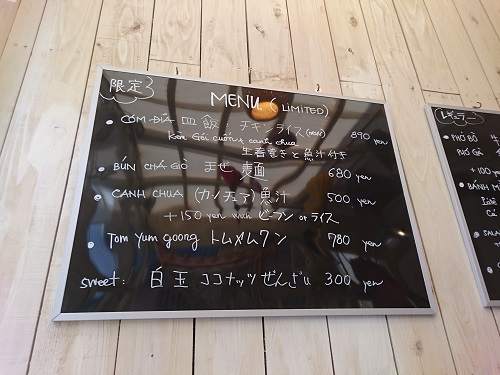 限定
MENU (LIMITED)
CÓM ĐĨA 皿飯 チキンライス 890 yen
Kèm Gỏi cuốn & canh chua
生春巻きと魚汁付き
BÚN CHẢ GIÒ まぜ麺 680 yen
CANH CHUA (カンチュア) 魚汁 500 yen
+150 yen with ビーフン or ライス
Tom Yum goong トムヤムクン 780 yen
sweet: 白玉 ココナッツぜんざい 300 yen
レギュラー
PHỞ BÒ
PHỞ GÀ
+100 ye
BÁNH M
SALA